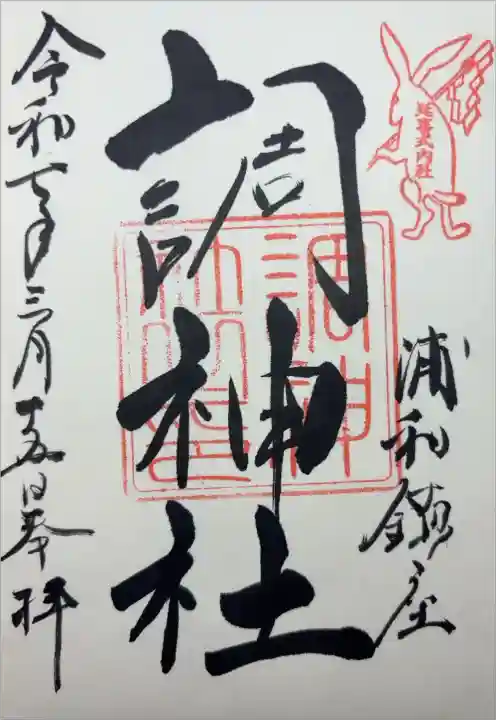 延喜式内社
浦和鎮座
調神社
令和七年三月十五日奉拝